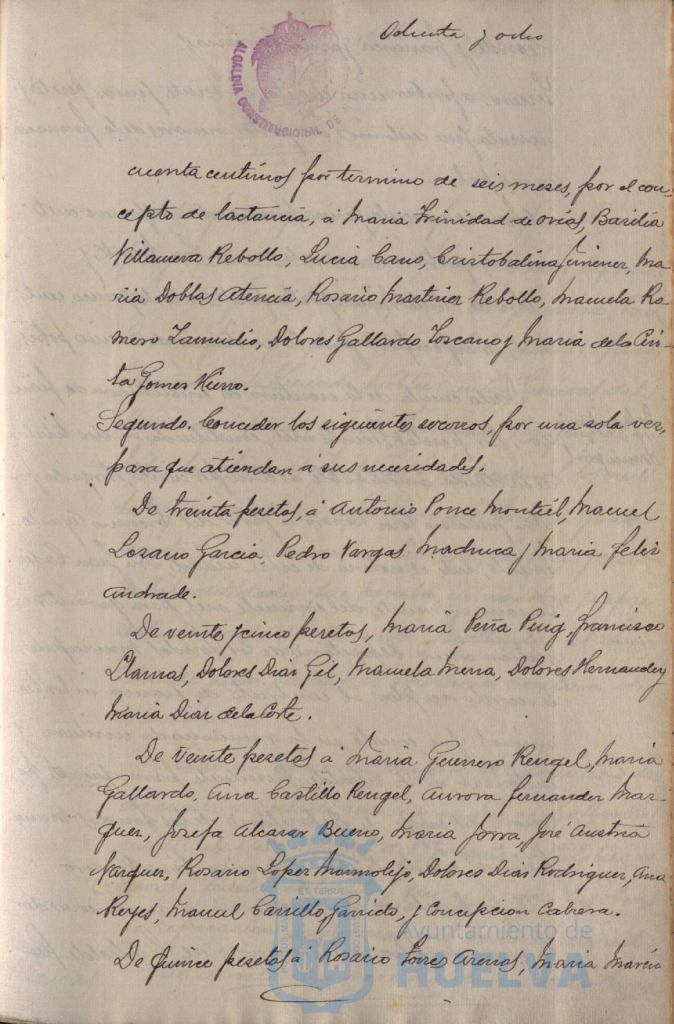 Ochenta y ocho
ALCALDIA CONSTITUCIONAL DE
cuenta centimos por termino de seis meses, por el con-
cepto de lactancia, á Maria Trinidad de Orios, Basilia
Villanueva Rebollo, Lucia Cano, Cristobalina Jimenez, Ma
ria Doblas Atencia, Rosario Martinez Rebollo, Manuela Ro
mero Zamudio, Dolores Gallardo Toscano y Maria de la Cin-
ta Gomez
Segundo. Conceder los siguientes socorros, por una sola vez,
para que atiendan á sus necesidades.
De treinta pesetas, á Antonio Ponce Montiel, Manuel
Lozano Garcia, Pedro Vargas Madruca y Maria Feliz
Andrade.
De veinte y cinco pesetas, Maria Peña Puig, Francisco
Llamas, Dolores Diaz Gil, Manuela Mena, Dolores Hernandez y
Maria Diaz de la Corte.
De veinte pesetas á Maria Guerrero Rengel, Maria
Gallardo, Ana Castillo Rengel, Aurora Fernandez Mar-
quez, Josefa Alcazar Bueno, Maria Jorva, José Austria
Vazquez, Rosario Lopez Marmolejo, Dolores Dias Rodriguez, Ana
Reyes, Manuel Carrillo Garrido, y Concepcion Cabrera.
De Quince pesetas á Rosario Torres Arenas, Maria Marin
Ayuntamiento de
HUELVA